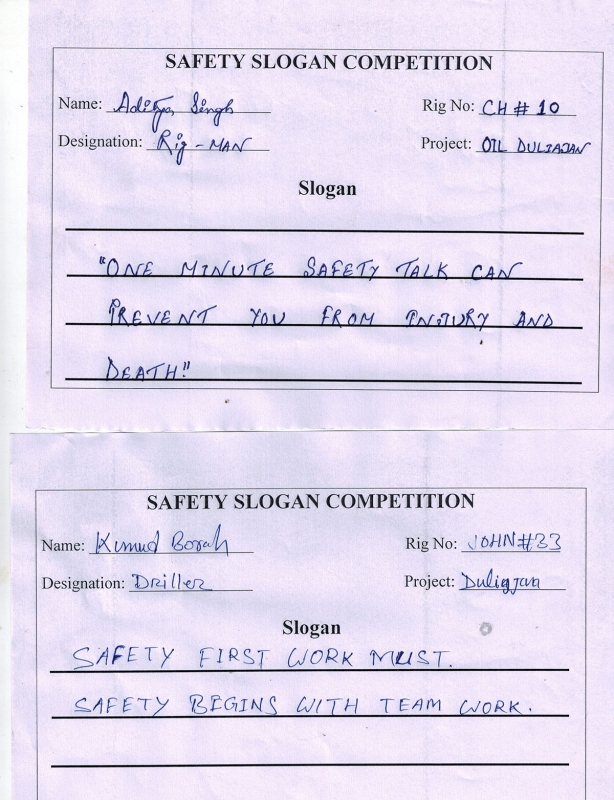 SAFETY SLOGAN COMPETITION
Name: Aditya Singh Rig No: CH # 10
Designation: Rig - MAN Project: OIL DULIAJAN
Slogan
"ONE MINUTE SAFETY TALK CAN
PREVENT YOU FROM INJURY AND
DEATH!"
SAFETY SLOGAN COMPETITION
Name: Kumud Borah Rig No: JOHN#33
Designation: Driller Project: Duliajan
Slogan
SAFETY FIRST WORK MUST.
SAFETY BEGINS WITH TEAM WORK.